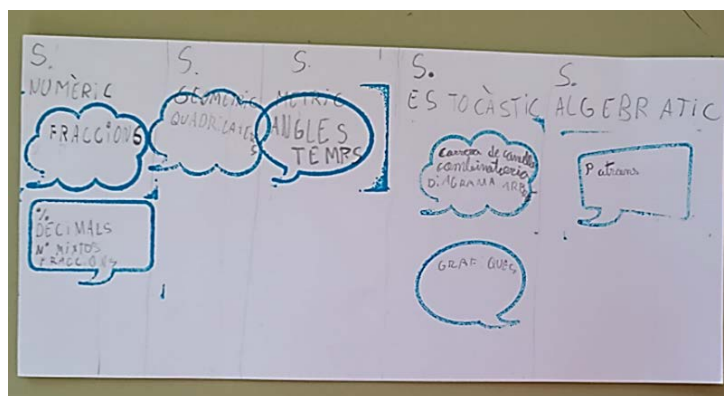 S.
NUMÈRIC
FRACCIONS
%
DECIMALS
Nº MIXTOS
FRACCIONS
S.
GEOMÈRIC
S.
METRIC
ANGLES
TEMPS
S.
ESTOCÀSTIC
Carrera de
combinatoria
DIAGRAMA
GRAFIQUES
S.
ALGEBRATIC
Patrons